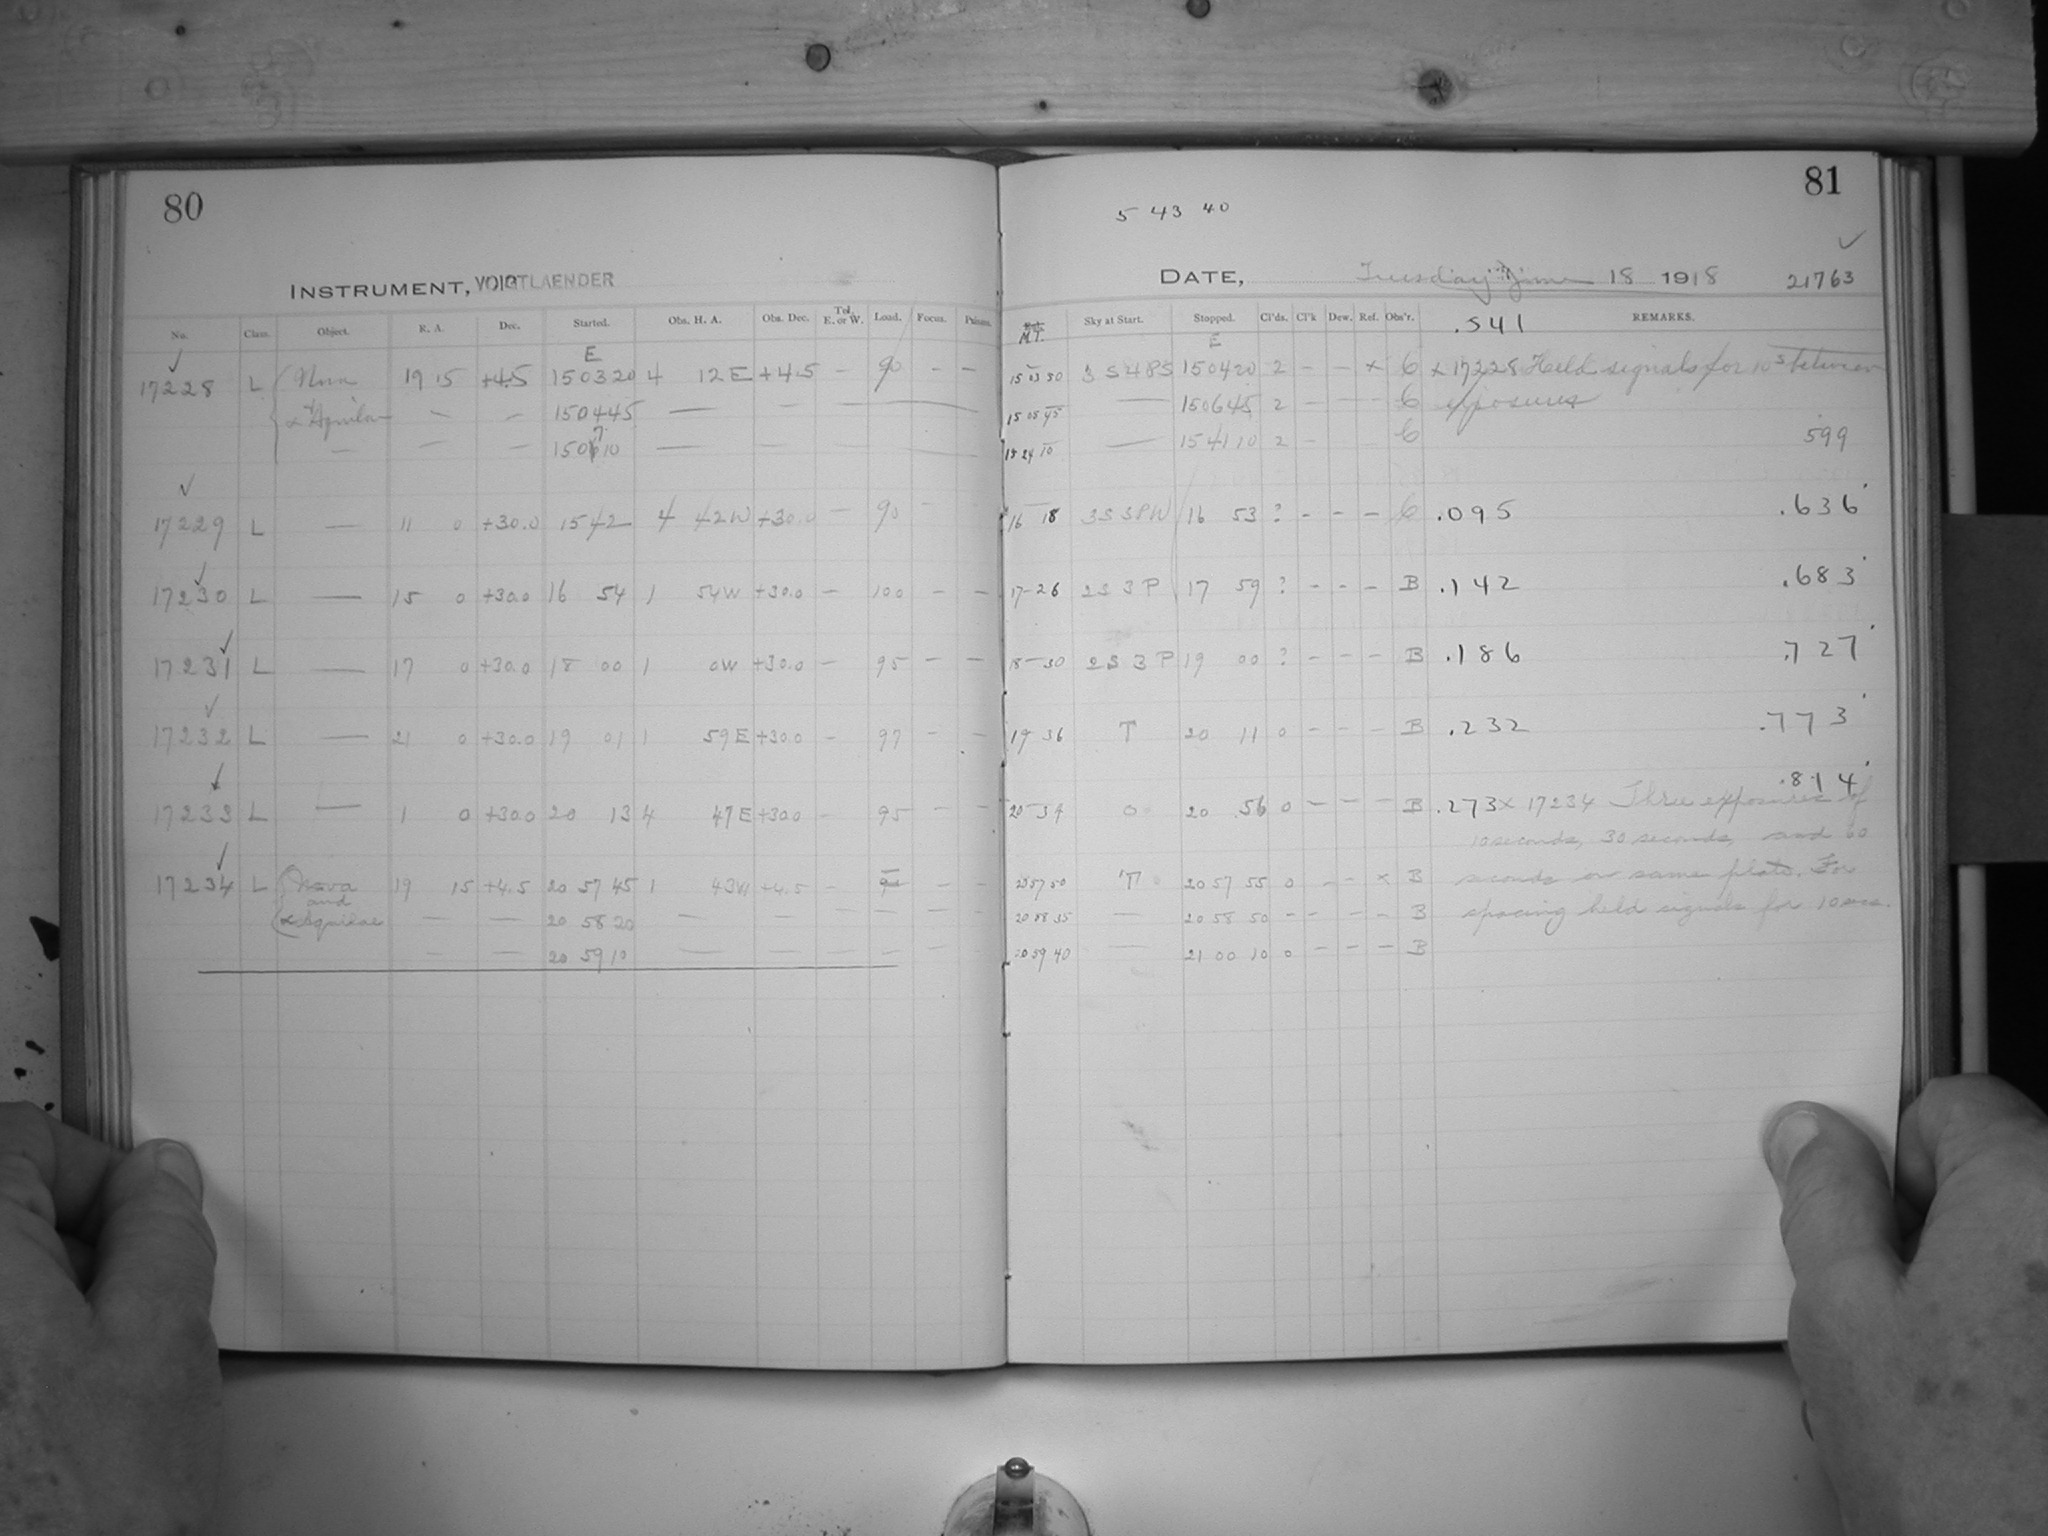 80
INSTRUMENT, VOIGTLAENDER
No. Class. Object. R. A. Dec. Started. Obs. H. A. Obs. Dec. Tel. E. or W. Load. Focus.
E
17228 L Nova 19 15 +4.5 150320 4 12E +4.5 – 90 – –
α Aquilae — – 150445 — –
— — – 150710 — –
17229 L — 11 0 +30.0 1542 4 42W +30.0 – 90 –
17230 L — 15 0 +30.0 16 54 1 54W +30.0 – 100 – –
17231 L — 17 0 +30.0 18 00 1 0W +30.0 – 95 – –
17232 L — 21 0 +30.0 19 01 1 59E +30.0 – 97 – –
17233 L — 1 0 +30.0 20 13 4 47E +30.0 – 95 – –
17234 L Nova 19 15 +4.5 20 57 45 1 43W +4.5 –
and
α Aquilae — — 20 58 20 — – – – –
— — 20 59 10 — – – – –
81
5 43 40
DATE, Tuesday June 18 1918 21763
M.T. Sky at Start. Stopped. Cl'ds. Cl'k Dew. Ref. Obs'r. .541 REMARKS.
E
15 03 50 3S48S 150420 2 – – x 6 x 17228 Held signals for 10s between
15 05 45 — 150645 2 – – – 6 exposures
15 24 10 — 154110 2 – 6 599
16 18 3S3PW 16 53 ? – – – 6 .095 .636
17 26 2S3P 17 59 ? – – – B .142 .683
18 30 2S3P 19 00 ? – – – B .186 .727
19 36 T 20 11 0 – – – B .232 .773
.814
20 34 0 20 56 0 – – – B .273 x 17234 Three exposures of
10 seconds, 30 seconds, and 60
20 57 50 T 20 57 55 0 – – x B seconds on same plate. For
20 58 35 — 20 58 50 – – – – B spacing held signals for 10 secs.
20 59 40 — 21 00 10 0 – – – B